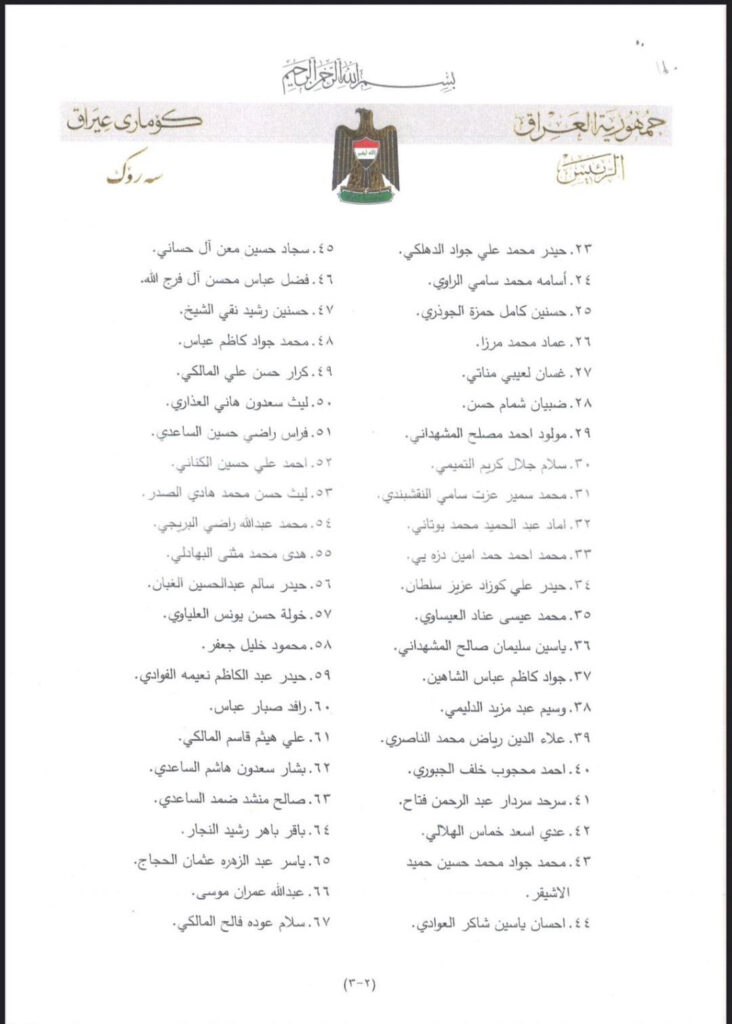 بسم الله الرحمن الرحيم
جمهورية العراق
الرئيس
كۆماری عیراق
سەرۆک
الله أكبر
٢٣. حيدر محمد علي جواد الدهلكي.
٢٤. أسامه محمد سامي الراوي.
٢٥. حسنين كامل حمزة الجوذري.
٢٦. عماد محمد مرزا.
٢٧. غسان لعيبي مناتي.
٢٨. ضبيان شمام حسن.
٢٩. مولود احمد مصلح المشهداني.
٣٠. سلام جلال كريم التميمي.
٣١. محمد سمير عزت سامي النقشبندي.
٣٢. اماد عبد الحميد محمد بوتاني.
٣٣. محمد احمد حمد امين دزه يي.
٣٤. حيدر علي كوزاد عزيز سلطان.
٣٥. محمد عيسى عناد العيساوي.
٣٦. ياسين سليمان صالح المشهداني.
٣٧. جواد كاظم عباس الشاهين.
٣٨. وسيم عبد مزيد الدليمي.
٣٩. علاء الدين رياض محمد الناصري.
٤٠. احمد محجوب خلف الجبوري.
٤١. سرحد سردار عبد الرحمن فتاح.
٤٢. عدي اسعد خماس الهلالي.
٤٣. محمد جواد محمد حسين حميد
الاشيقر.
٤٤. احسان ياسين شاكر العوادي.
٤٥. سجاد حسين معن آل حساني.
٤٦. فضل عباس محسن آل فرج الله.
٤٧. حسنين رشيد نقي الشيخ.
٤٨. محمد جواد كاظم عباس.
٤٩. كرار حسن علي المالكي.
٥٠. ليث سعدون هاني العذاري.
٥١. فراس راضي حسين الساعدي.
٥٢. احمد علي حسين الكناني.
٥٣. ليث حسن محمد هادي الصدر.
٥٤. محمد عبدالله راضي البريجي.
٥٥. هدى محمد مثنى البهادلي.
٥٦. حيدر سالم عبدالحسين الغبان.
٥٧. خولة حسن يونس العلياوي.
٥٨. محمود خليل جعفر.
٥٩. حيدر عبد الكاظم نعيمه الفوادي.
٦٠. رافد صبار عباس.
٦١. علي هيثم قاسم المالكي.
٦٢. بشار سعدون هاشم الساعدي.
٦٣. صالح منشد ضمد الساعدي.
٦٤. باقر باهر رشيد النجار.
٦٥. ياسر عبد الزهره عثمان الحجاج.
٦٦. عبدالله عمران موسى.
٦٧. سلام عوده فالح المالكي.
(٢-٣)